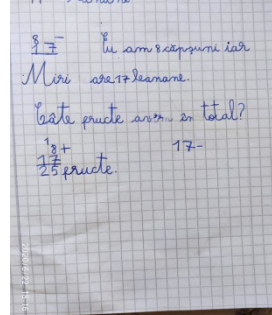 8
17 -
Eu am 8 căpșuni iar
Miri are 17 banane.
Câte fructe avem în total?
8+
17
25 fructe.
17-